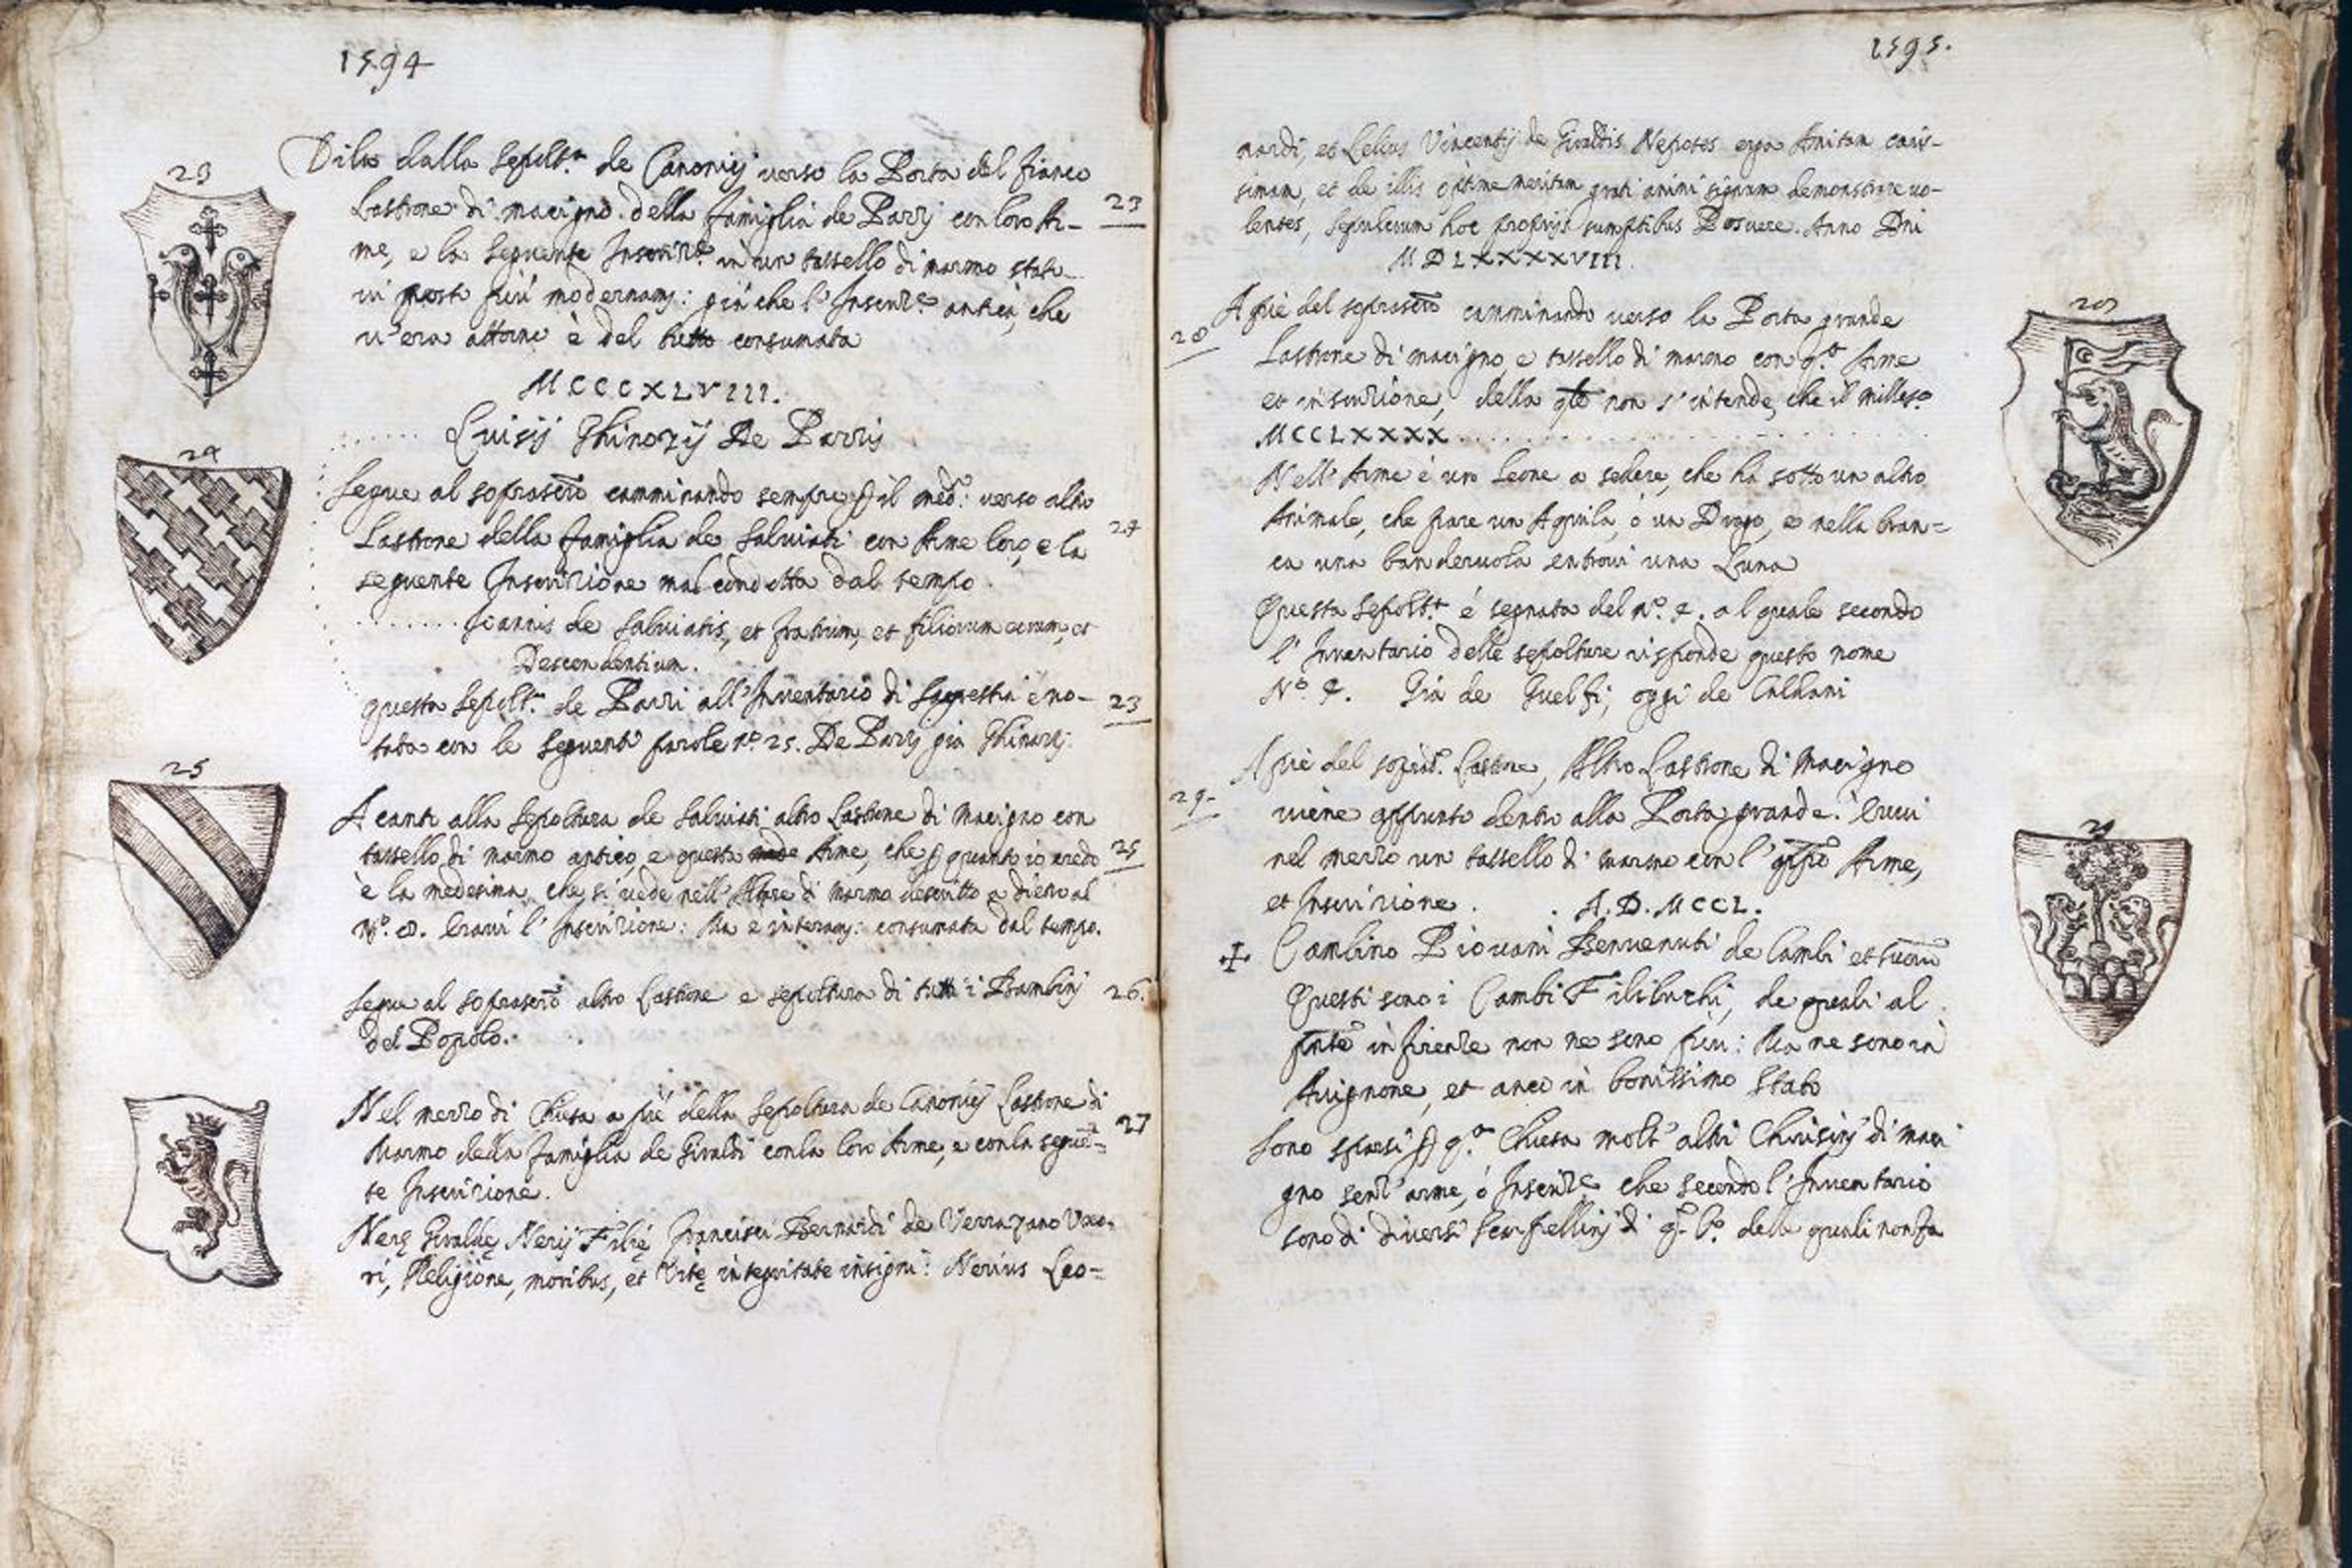 1594
23
Di la dalla sepolt.ra de Canonicj verso la Porta del fianco
Lastrone di macigno della famiglia de Pazzj con loro Ar-
23
me, e la seguente Inscriz.e in un tassello di marmo stato-
vi posto più modernam: già che l'Inscriz.e antica, che
v'era attorno è del tutto consumata
MCCCXLVIII.
Luisij Ghinozij De Pazzis
24
Segue al soprascrō camminando sempre p il med.o verso altro
Lastrone della famiglia de Salviati con Arme loro, e la
24
seguente Inscrizione mal condotta dal tempo.
........ Joannis de Salviatis, et fratrum, et filiorum eorum, et
Descendentium.
questa sepolt.ra de Pazzi all'Inventario di Sagrestia è no-
23
tata con le seguenti parole n.o 25. De Pazzj già Ghinozzj.
25
A canto alla sepoltura de Salviati altro Lastrone di macigno con
tassello di marmo antico, e questa Arme, che p quanto io credo
25
è la medesima, che si vede nell' di marmo descritto a dietro al
N.o 8. Eravi l'Inscrizione: Ma è interam: consumata dal tempo.
Segue al soprascrō altro Lastrone e sepoltura di tutti i Bambinj
26.
del Popolo.
Nel mezzo di Chiesa a piè della sepoltura de Canonicj Lastrone di
27
Marmo della famiglia de Giraldi con la loro Arme, e con la seguē-
te Inscrizione.
Nerę Giraldę Nerij Filię Francisci Bernardi de Verrazano Uxo-
ri, Religione, moribus, et vitę integritate insigni: Nerius Leo-
1595.
nardi, et Lelius Vincentij de Giraldis Nepotes erga Amitam caris-
simam, et de illis optime meritam grati animi signum demonstrare vo-
lentes, sepulcrum hoc proprijs sumptibus Posuere. Anno Dni
MDLXXXXVIII.
28
A piè del soprascrō camminando verso la Porta grande
28
Lastrone di macigno, e tassello di marmo con q.ta Arme
et inscrizione, della qle non s'intende, che il milles.o
MCCLXXXX..........
Nell'Arme è un Leone a sedere, che hà sotto un altro
Animale, che pare un Aquila, ò un Drago, e nella bran=
ca una banderuola entrovi una Luna
Questa Sepolt.a è segnata del N.o 2. al quale secondo
l'Inventario delle sepolture risponde questo nome
N.o 2. Già de Guelfi, oggi de Caldani
A piè del soprad.o Lastrone, Altro Lastrone di Macigno
29-
viene appunto dentro alla Porta grande. Evvi
29
nel mezzo un tassello di marmo con l' Arme,
et Inscrizione. . A.D. MCCL.
✠ Cambino Giovani Benvenuti de Cambi et suorū
Questi sono i Cambi Filibuzhi, de quali al
pnte in firenze non ne sono più: Ma ne sono in
Avignone, et anco in bonissimo stato
Sono sparsi p q.ta Chiesa molt'altri Chiusinj di maci-
gno senz'arme, ò Inscriz.e, che secondo l'Inventario
sono di diversi Scarpellinj di q.o P.o delle quali non fa